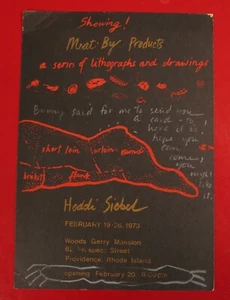 Showing!
Meat By Products
a series of lithographs and drawings
Bunny said for me to send you
a card - so
here it is!
hope you
can
come,
you
might
like
it.
short loin sirloin round
brisket flank
Heddi Siebel
FEBRUARY 19-26, 1973
Woods Gerry Mansion
Street
Providence, Rhode Island
opening February 20